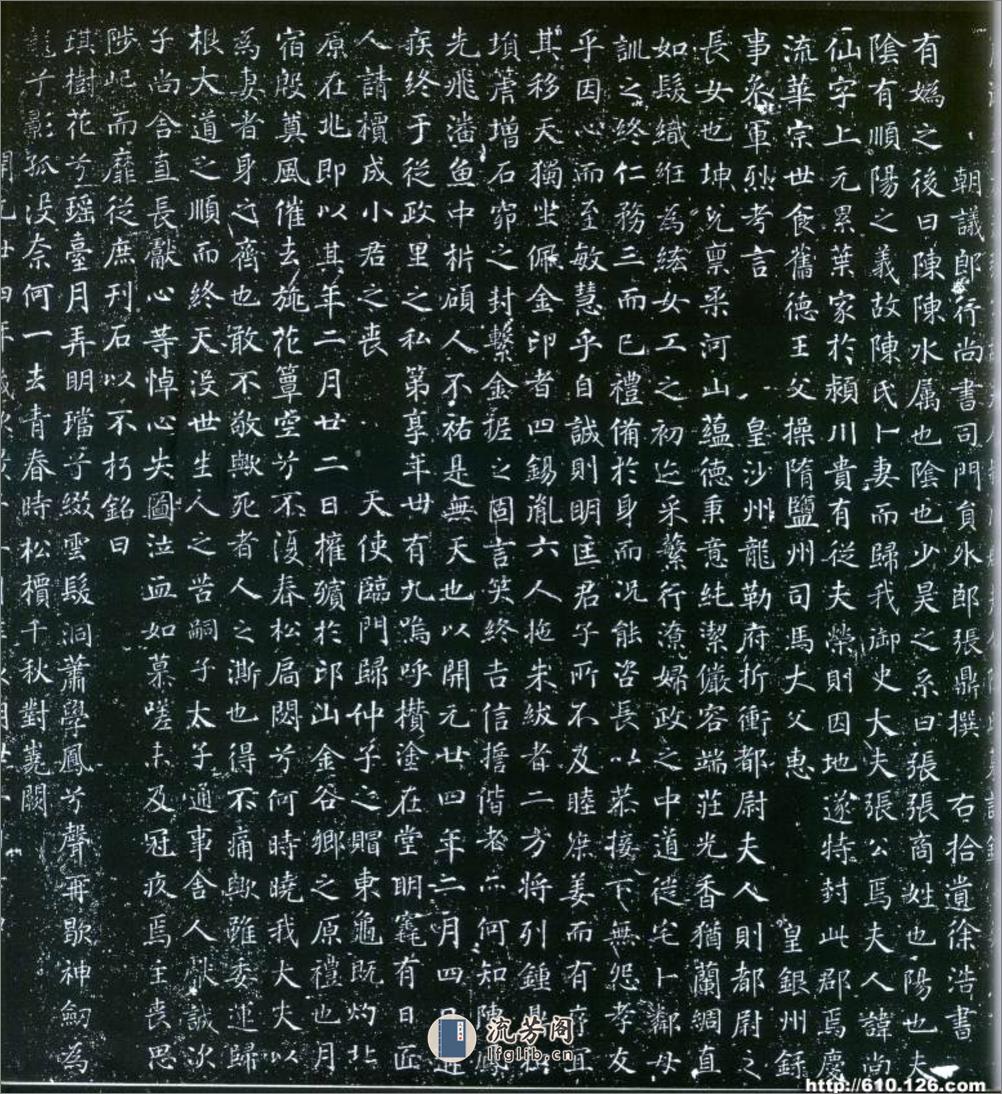 朝議郎行尚書司門員外郎張鼎撰 右拾遺徐浩書
有媯之後曰陳陳水属也陰也少昊之系曰張張商姓也陽也夫
陰有順陽之義故陳氏卜妻而歸我御史大夫張公焉夫人諱尚
仙字上元累葉家於潁川貴有從夫榮則因地遂特封此郡焉慶
流華宗世食舊德王父操隋鹽州司馬大父惠 皇銀州録
事叅軍烈考言 皇沙州龍勒府折衝都尉夫人則都尉之
長女也坤兌禀柔河山蘊德秉意純潔儼容端莊光香猶蘭綢直
如髮織紝為絲女工之初迄采蘩行潦婦政之中道從宅卜鄰母
訓之終仁務三而已禮備於身而况能咨長以恭接下無怨孝友
乎因心而至敏慧乎自誠則明匡君子所不及睦娣姜而有序宜
其移天獨坐佩金印者四錫胤六人拖朱紱者二方將列鍾
塤箎增石窌之封繫金 之固言笑終吉信擔偕老亦何知陳鳳
先飛潘魚中析碩人不祐是無天也以開元廿四年二月四日
疾终于從政里之私第享年卅有九嗚呼欑塗在堂明竁有日
人請櫝成小君之喪 天使臨門歸仲子之賵東龜既灼北
原在兆即以其年二月廿二日權殯於邙山金谷鄉之原禮也月
宿殷奠風催去旐花簟空兮不復春松扃閟兮何時曉我大夫以
為妻者身之齊也敢不敬歟死者人之澌也得不痛歟雖委運歸
根大道之順而终天没世生人之苦嗣子太子通事舍人献誠次
子尚舍直長獻心等悼心失圖泣血如慕嗟未及冠疚焉主喪思
陟屺而靡從庶刊石以不朽銘曰
琪樹花兮瑶臺月弄明璫兮綴雲髮洞蕭學鳳兮聲再歇神劒為
龍兮影孤没奈何一去青春時松檟千秋對嶤闕
開元廿四年
流芳阁
lfglib.cn
http://610.126.com/